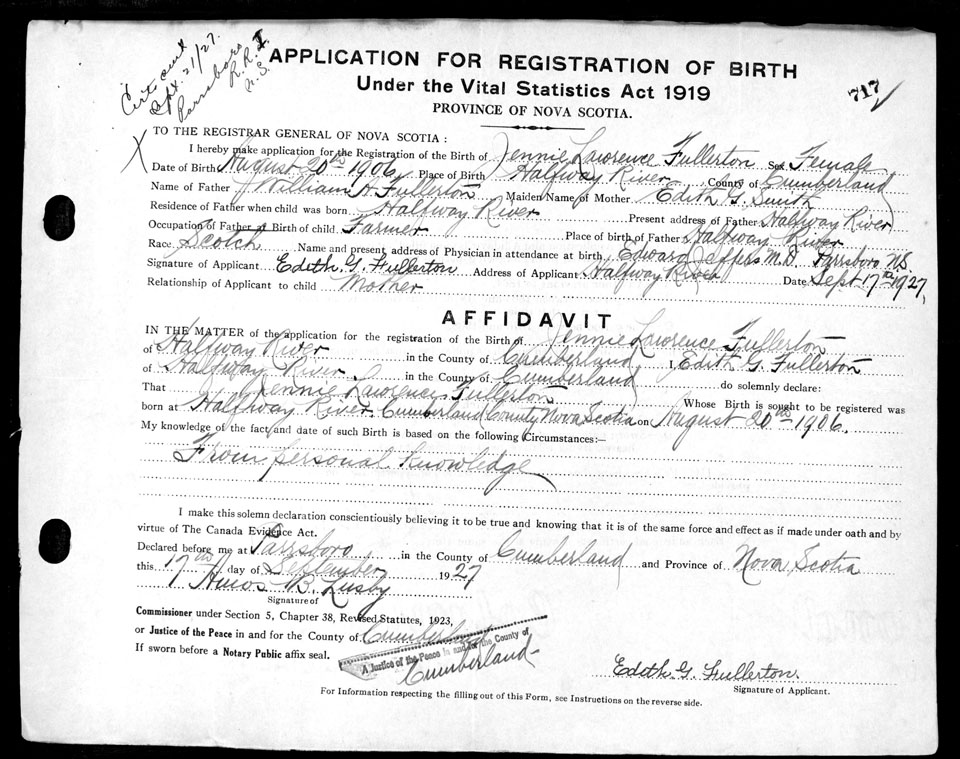 Cert sent
Sept. 21/27.
Parrsboro
R.R. 1
N.S.
APPLICATION FOR REGISTRATION OF BIRTH
717
Under the Vital Statistics Act 1919
PROVINCE OF NOVA SCOTIA.
X TO THE REGISTRAR GENERAL OF NOVA SCOTIA:
I hereby make application for the Registration of the Birth of Jennie Lawrence Fullerton Sex Female
Date of Birth August 20th 1906 Place of Birth Halfway River County of Cumberland
Name of Father William H. Fullerton Maiden Name of Mother Edith G. Smith
Residence of Father when child was born Halfway River Present address of Father Halfway River
Occupation of Father at Birth of child Farmer Place of birth of Father Halfway River
Race Scotch Name and present address of Physician in attendance at birth Edward Jeffers M.D. Parrsboro N.S.
Signature of Applicant Edith. G. Fullerton Address of Applicant Halfway River Date Sept. 17th 1927,
Relationship of Applicant to child Mother
AFFIDAVIT
IN THE MATTER of the application for the registration of the Birth of Jennie Lawrence Fullerton
of Halfway River in the County of Cumberland I, Edith G. Fullerton
of Halfway River in the County of Cumberland do solemnly declare:
That Jennie Lawrence Fullerton Whose Birth is sought to be registered was
born at Halfway River Cumberland County Nova Scotia on August 20th 1906.
My knowledge of the fact and date of such Birth is based on the following Circumstances:—
From personal knowledge
I make this solemn declaration conscientiously believing it to be true and knowing that it is of the same force and effect as if made under oath and by
virtue of The Canada Evidence Act.
Declared before me at Parrsboro in the County of Cumberland and Province of Nova Scotia
this 17th day of September 1927
Amos B. Lusby
Signature of
Commissioner under Section 5, Chapter 38, Revised Statutes, 1923,
or Justice of the Peace in and for the County of Cumberland
If sworn before a Notary Public affix seal.
A Justice of the Peace in and for the County of
Cumberland
Edith. G. Fullerton.
Signature of Applicant.
For Information respecting the filling out of this Form, see Instructions on the reverse side.